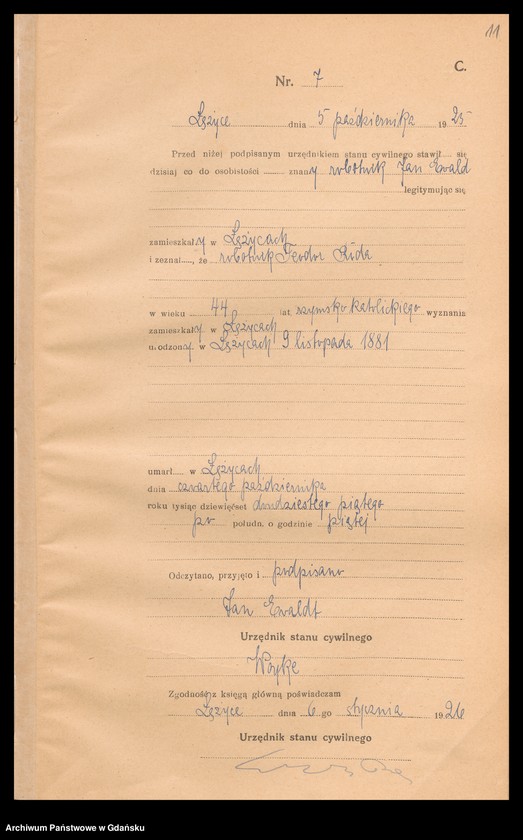 11
C.
Nr. 7
Łężyce dnia 5 października 1925
Przed niżej podpisanym urzędnikiem stanu cywilnego stawił się
dzisiaj co do osobistości znany robotnik Jan Ewald
legitymując się
zamieszkały w Łężycach
i zeznał, że robotnik Teodor
w wieku 44 lat rzymsko katolickiego wyznania
zamieszkały w Łężycach
urodzony w Łężycach 9 listopada 1881
umarł w Łężycach
dnia czwartego października
roku tysiąc dziewięćset dwudziestego piątego
po połudn. o godzinie piątej
Odczytano, przyjęto i podpisano
Jan Ewaldt
Urzędnik stanu cywilnego
Woyke
Zgodność z księgą główną poświadczam
Łężyce dnia 6 go stycznia 1926
Urzędnik stanu cywilnego
Archiwum Państwowe w Gdańsku